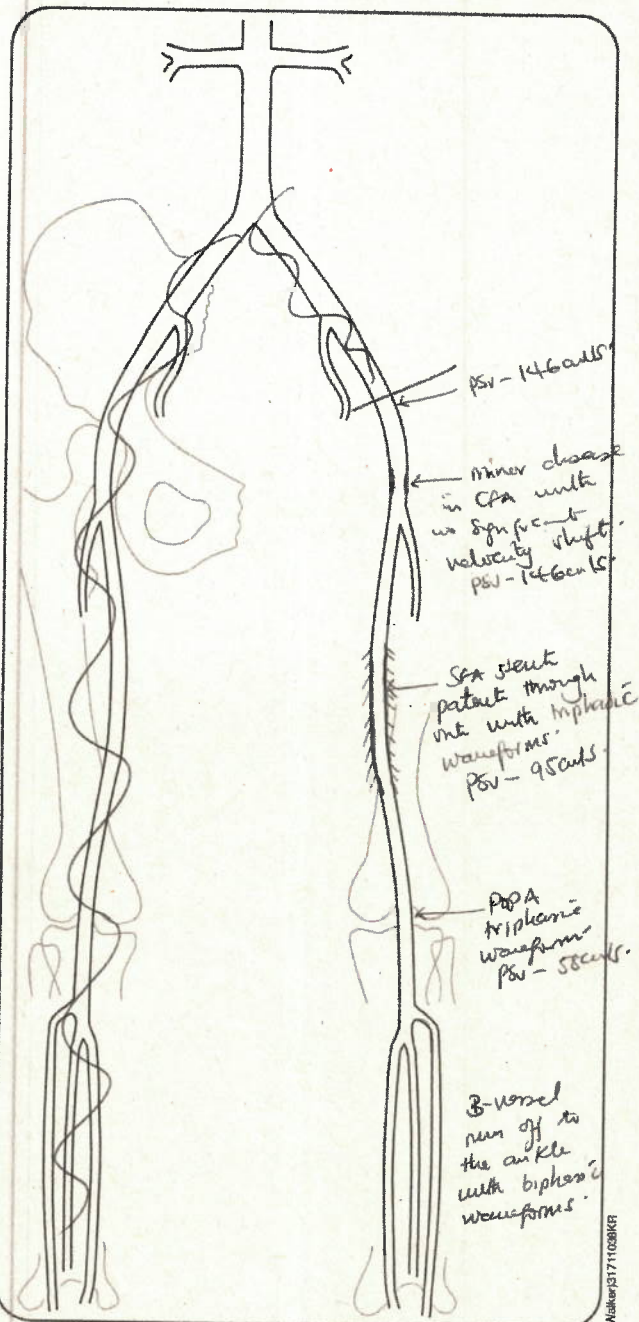 PSV - 146cm/s.
minor disease
in CFA with
no significant
velocity shift.
PSV - 146cm/s.
SFA stent
patent through
out with triphasic
waveforms.
PSV - 95cm/s.
POPA
triphasic
waveform
PSV - 55cm/s.
3-vessel
run off to
the ankle
with biphasic
waveforms